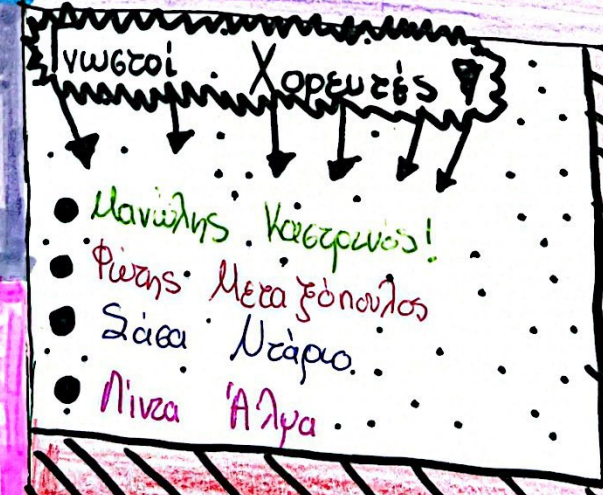 Γνωστοί Χορευτές
Μανώλης Καστρινός!
Φώτης Μεταξόπουλος
Σάσα Ντάριο.
Λίντα Άλμα